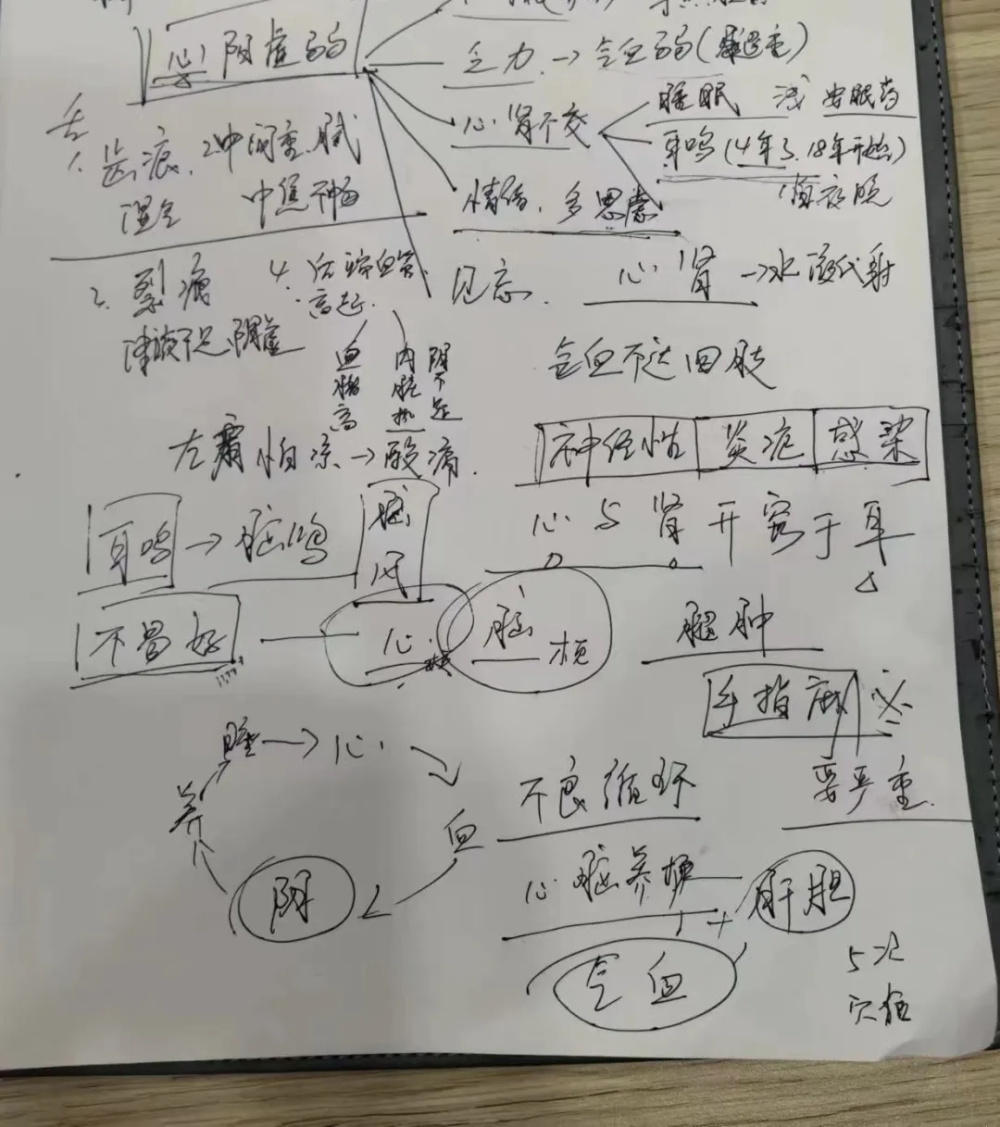 心阴虚弱
乏力 → 气血弱(重)
心肾不交
睡眠 浅 安眠药
耳鸣(14年、18年开始)
舌
1、齿痕、2中间重腻
湿 中焦不畅
情绪、多思虑
3、裂痕
津液不足阴虚
4、
高
见忘、心肾 → 水液代谢
血 高
内脏热
阴不足
气血不达四肢
左肩怕凉 → 酸痛
神经性 炎症 感染
耳鸣 → 脑鸣 脑风
心与肾开窍于耳
不易好 心 脑梗
腿肿
手指麻
睡 → 心
血
阴
养
不良循环
要严重
心脑养梗 + 肝胆
气血
5次
穴位